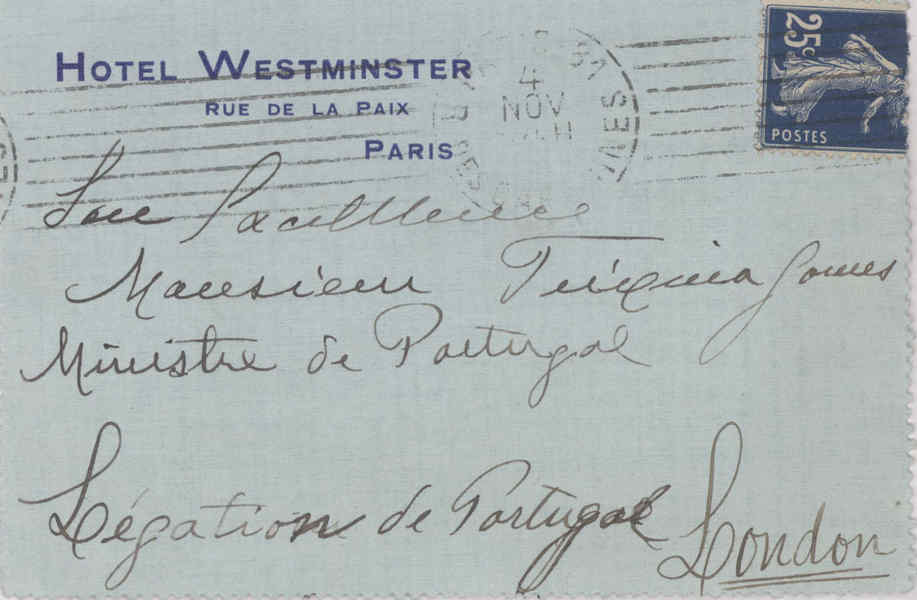 HOTEL WESTMINSTER
RUE DE LA PAIX
PARIS
4
NOV
25c
POSTES
Son Excellence
Monsieur Teixeira Gomes
Ministre de Portugal
Légation de Portugal
London